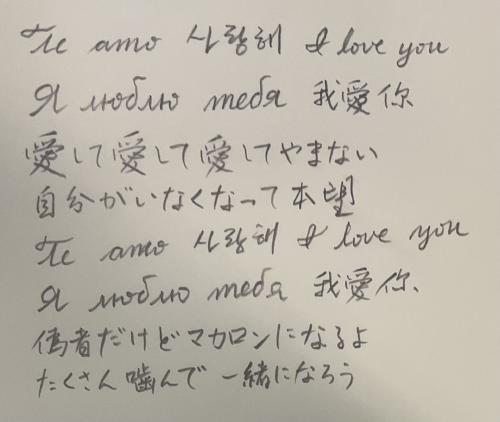 Te amo 사랑해 I love you
Я люблю тебя 我愛你
愛して愛して愛してやまない
自分がいなくなって本望
Te amo 사랑해 I love you
Я люблю тебя 我愛你、
偽者だけどマカロンになるよ
たくさん噛んで一緒になろう